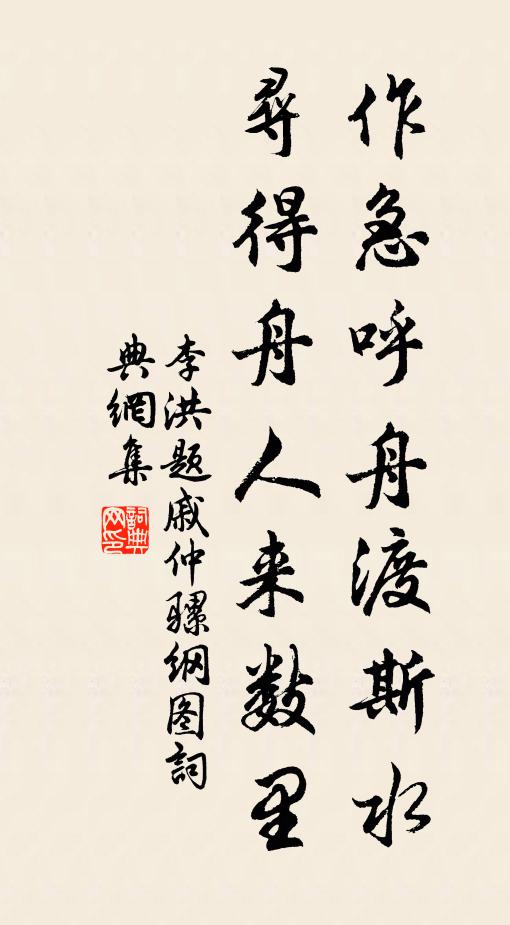 作急呼舟渡斯水
尋得舟人来数里
李洪题戚仲骡纲图詞
典網集
詞典
网印